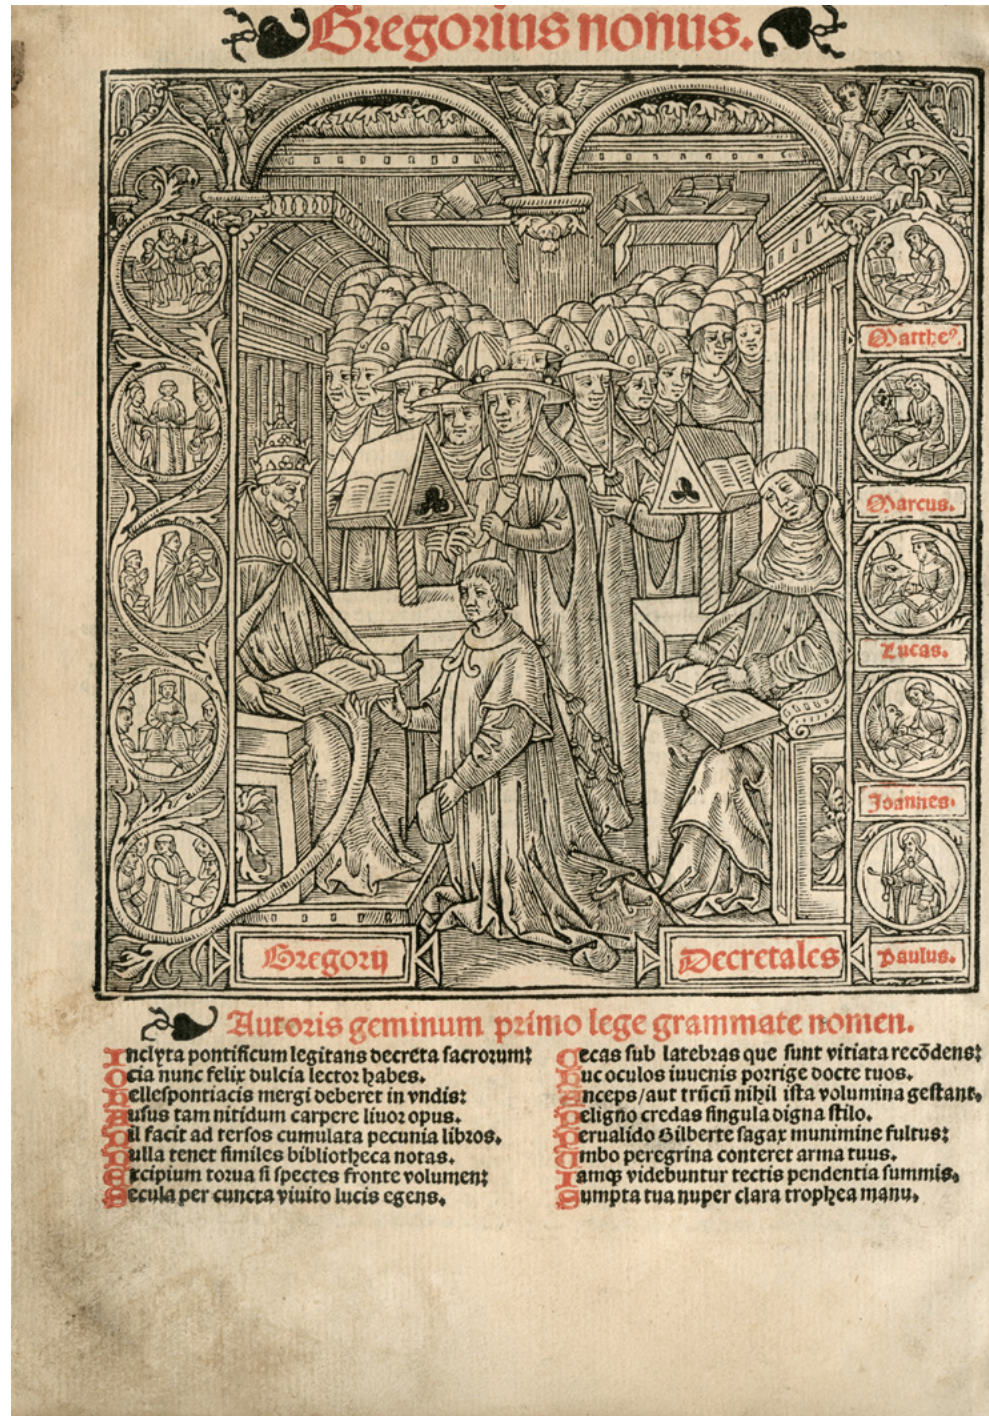 Gregorius nonus.
Matthe⁹.
Marcus.
Lucas.
Joannes.
Paulus.
Gregorij
Decretales
Autoris geminum primo lege grammate nomen.
Inclyta pontificum legitans decreta sacrorum:
Ocia nunc felix dulcia lector habes.
Hellespontiacis mergi deberet in vndis:
Ausus tam nitidum carpere liuor opus.
Nil facit ad tersos cumulata pecunia libros.
Nulla tenet similes bibliotheca notas.
Excipium torua si spectes fronte volumen:
Secula per cuncta viuito lucis egens.
Cecas sub latebras que sunt vitiata recōdens:
Huc oculos iuuenis porrige docte tuos.
Anceps/aut trūcū nihil ista volumina gestant.
Peligno credas singula digna stilo.
Perualido Gilberte sagax munimine fultus:
Vmbo peregrina conteret arma tuus.
Iamqꝫ videbuntur tectis pendentia summis.
Sumpta tua nuper clara trophea manu.